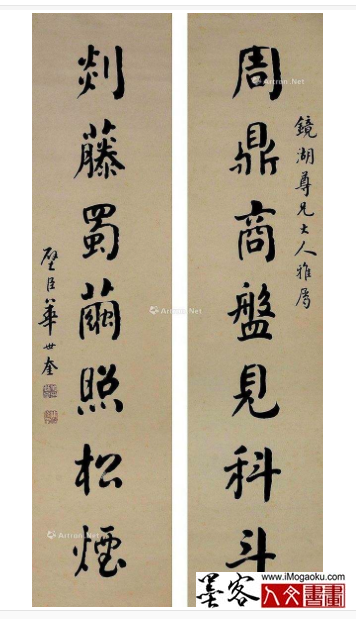 鏡湖尊兄大人雅屬
周鼎商盤見科斗
剡藤蜀繭照松煙
璧臣華世奎
Artron.Net
Artron.Net
Artron.Net
Artron.Net
墨客
www.iMogaoku.com
人文書畫